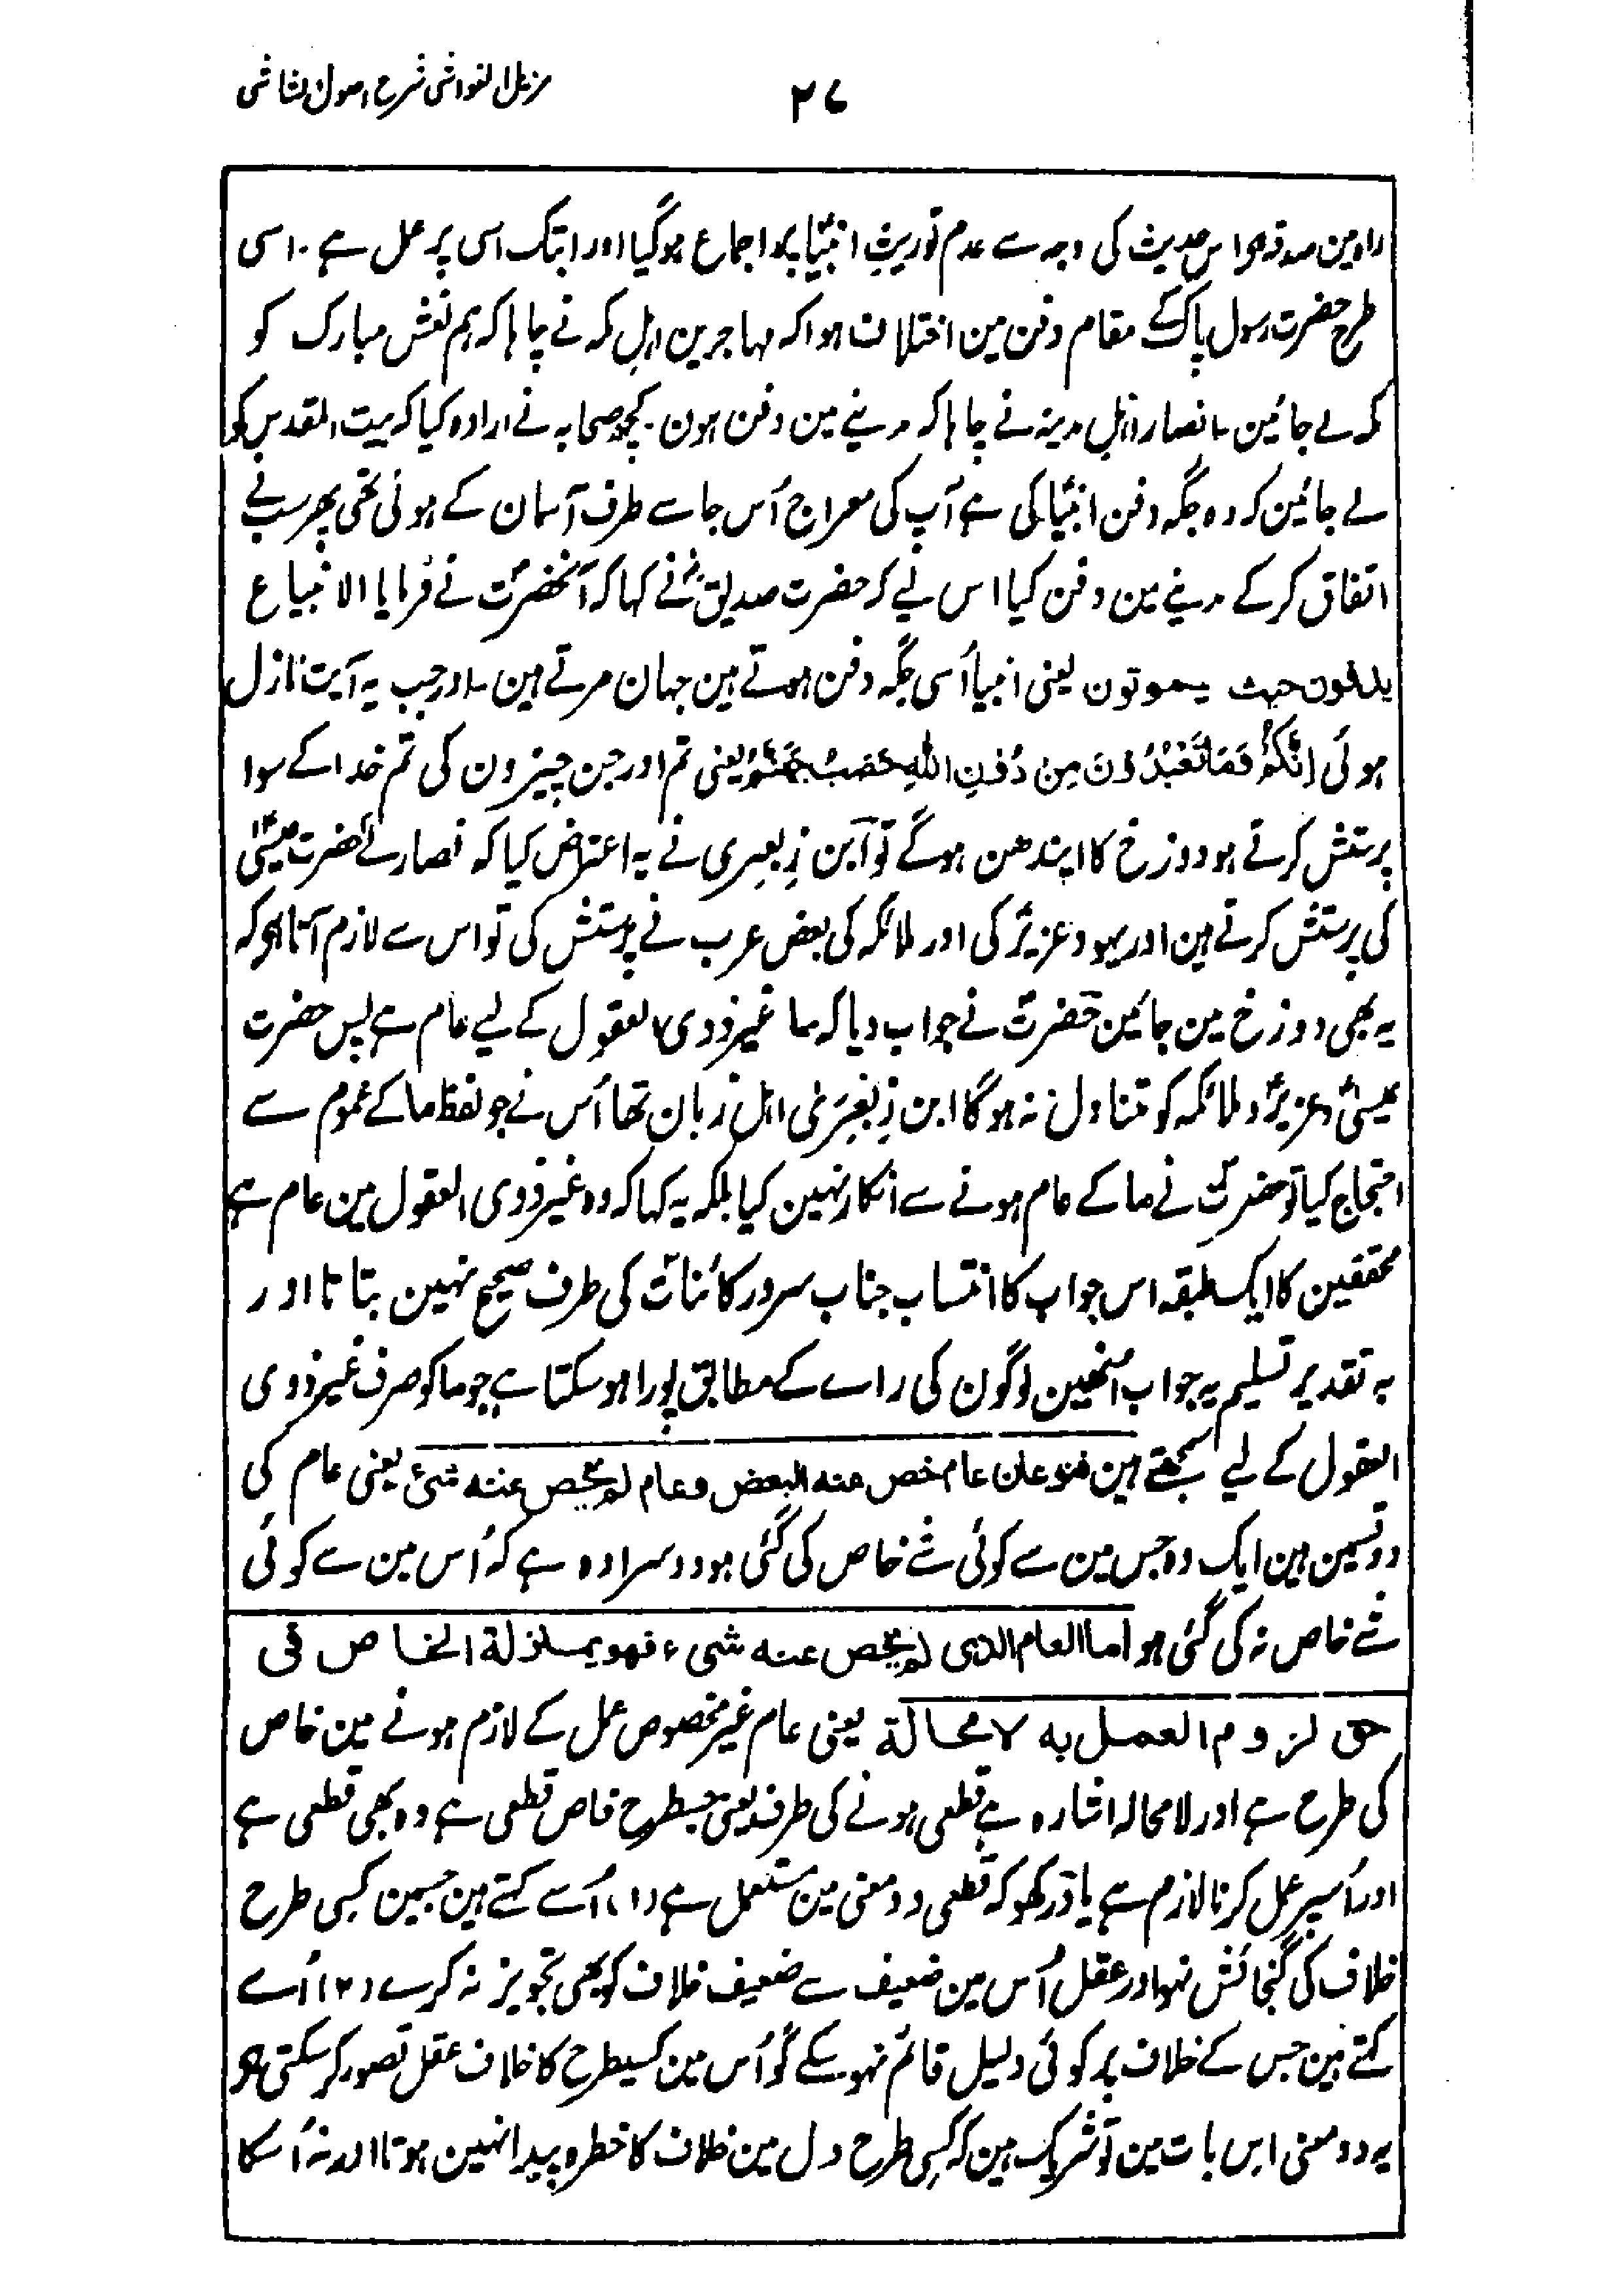 مزیل الغواشی شرح اصول الشاشی
۲۷
راہ مین صدقہ ہو اس حدیث کی وجہ سے عدم توریثِ انبیاؑ پر اجماع ہوگیا اور ابتک اسی پر عمل ہے۔ اسی
طرح حضرت رسول پاکؐ کے مقام دفن مین اختلاف ہوا کہ مہاجرین اہلِ مکہ نے چاہا کہ ہم نعش مبارک کو
مکہ لے جائین۔ انصار اہل مدینہ نے چاہا کہ مدینے مین دفن ہون۔ کچھ صحابہ نے ارادہ کیا کہ بیت المقدس کو
لے جائین کہ وہ جگہ دفن انبیاؑ کی ہے آپ کی معراج اُس جا سے طرف آسمان کے ہوئی تھی پھر سب نے
اتفاق کرکے مدینے مین دفن کیا اس لیے کہ حضرت صدیقؓ نے کہا کہ آنحضرتؐ نے فرمایا الانبیاء
یدفنون حیث یموتون یعنی انبیا اُسی جگہ دفن ہوتے ہین جہان مرتے ہین۔ اور جب یہ آیت نازل
ہوئی اِنَّکُمْ وَمَا تَعْبُدُوْنَ مِنْ دُوْنِ اللّٰهِ حَصَبُ جَهَنَّمَ یعنی تم اور جن چیزون کی تم خدا کے سوا
پرستش کرتے ہو دوزخ کا ایندھن ہوگے تو ابن زِبعری نے یہ اعتراض کیا کہ نصارےٰ حضرت عیسٰیؑ
کی پرستش کرتے ہین اور یہود عزیرؑ کی اور ملائکہ کی بعض عرب نے پرستش کی تو اس سے لازم آتا ہو کہ
یہ بھی دوزخ مین جائین حضرتؐ نے جواب دیا کہ ما غیر ذوی العقول کے لیے عام ہے پس حضرت
عیسیٰؑ وعزیرؑ و ملائکہ کو متناول نہ ہوگا ابن زِبَعْرَیٰ اہل زبان تھا اُس نے جو لفظ ما کے عموم سے
احتجاج کیا تو حضرتؐ نے ما کے عام ہونے سے انکار نہین کیا بلکہ یہ کہا کہ وہ غیر ذوی العقول مین عام ہے
محققین کا ایک طبقہ اس جواب کا انتساب جناب سرور کائناتؐ کی طرف صحیح نہین بتاتا اور
بہ تقدیر تسلیم یہ جواب انھین لوگون کی راے کے مطابق پورا ہوسکتا ہے جو ما کو صرف غیر ذوی
العقول کے لیے سمجھتے ہین فنوعان عام خص عنه البعض وعام لم یخص عنه شئ یعنی عام کی
دو قسمین ہین ایک وہ جس مین سے کوئی شے خاص کی گئی ہو دوسرا وہ ہے کہ اُس مین سے کوئی
شے خاص نہ کی گئی ہو اما العام الذی لم یخص عنه شیء فهو بمنزلة الخاص فی
حق لزوم العمل به لامحالة یعنی عام غیر مخصوص عمل کے لازم ہونے مین خاص
کی طرح ہے اور لامحالہ اشارہ ہے قطعی ہونے کی طرف یعنی جسطرح خاص قطعی ہے وہ بھی قطعی ہے
اور اُسپر عمل کرنا لازم ہے یاد رکھو کہ قطعی دو معنی مین مستعمل ہے (۱) اُسے کہتے ہین جسمین کسی طرح
خلاف کی گنجائش نہو اور عقل اُس مین ضعیف سے ضعیف خلاف کو بھی تجویز نہ کرے (۲) اُسے
کہتے ہین جس کے خلاف پر کوئی دلیل قائم نہو سکے گو اُس مین کسیطرح کا خلاف عقل تصور کرسکتی ہو
یہ دو معنی اِس بات مین تو شریک ہین کہ کسی طرح دل مین خلاف کا خطرہ پیدا نہین ہوتا اور نہ اُسکا